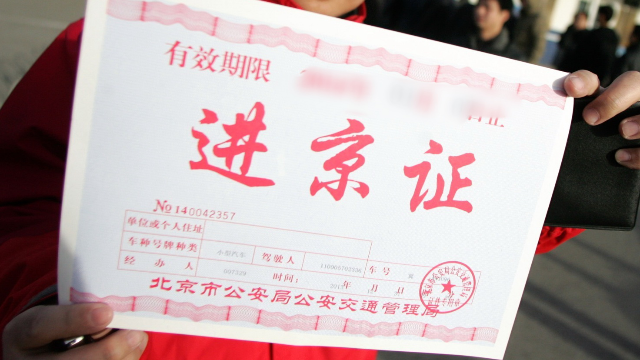 有效期限
止
进京证
№ 140042357
单位或个人住址
车种号牌种类 小型汽车 驾驶人 车号
经办人 时间: 年 月 日
北京市公安局公安交通管理局